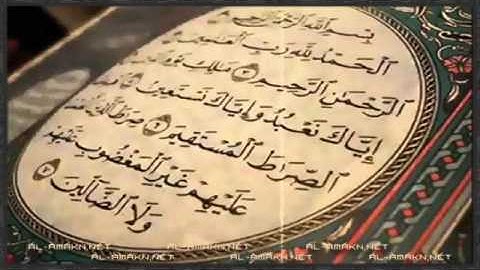 بِسْمِ ٱللَّهِ ٱلرَّحْمَٰنِ ٱلرَّحِيمِ
ٱلْحَمْدُ لِلَّهِ رَبِّ ٱلْعَٰلَمِينَ
ٱلرَّحْمَٰنِ ٱلرَّحِيمِ ٣ مَٰلِكِ يَوْمِ
إِيَّاكَ نَعْبُدُ وَإِيَّاكَ نَسْتَعِينُ
ٱلصِّرَٰطَ ٱلْمُسْتَقِيمَ ٦ صِرَٰطَ ٱلَّذِينَ
عَلَيْهِمْ غَيْرِ ٱلْمَغْضُوبِ عَلَيْهِمْ
وَلَا ٱلضَّآلِّينَ ٧
AL-AMAKN.NET AL-AMAKN.NET AL-AMAKN.NET
AL-AMAKN.NET AL-AMAKN.NET AL-AMAKN.NET